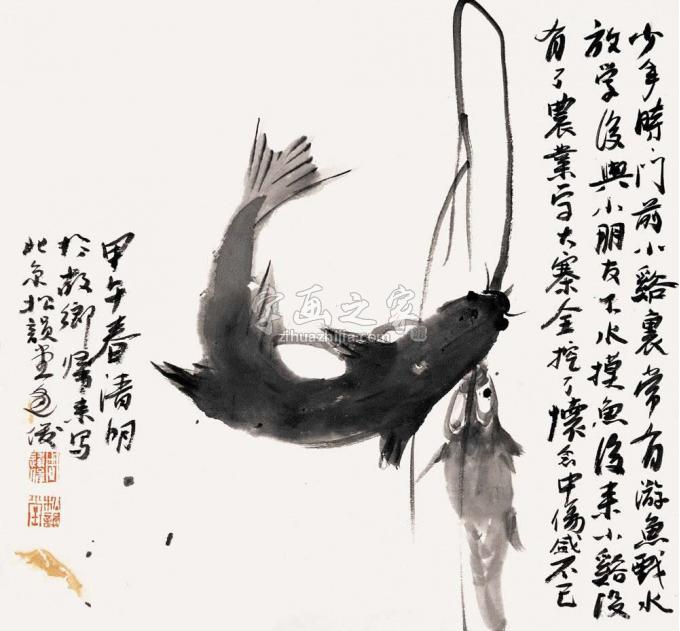 少年時门前小谿裏常有游魚戲水
放学後與小朋友下水摸魚後来小谿没
有了農業学大寨全挖了懷念中傷感不已
甲午春清明
於故鄉歸来写
北京松韻堂
字画之家
zihuazhijia.com